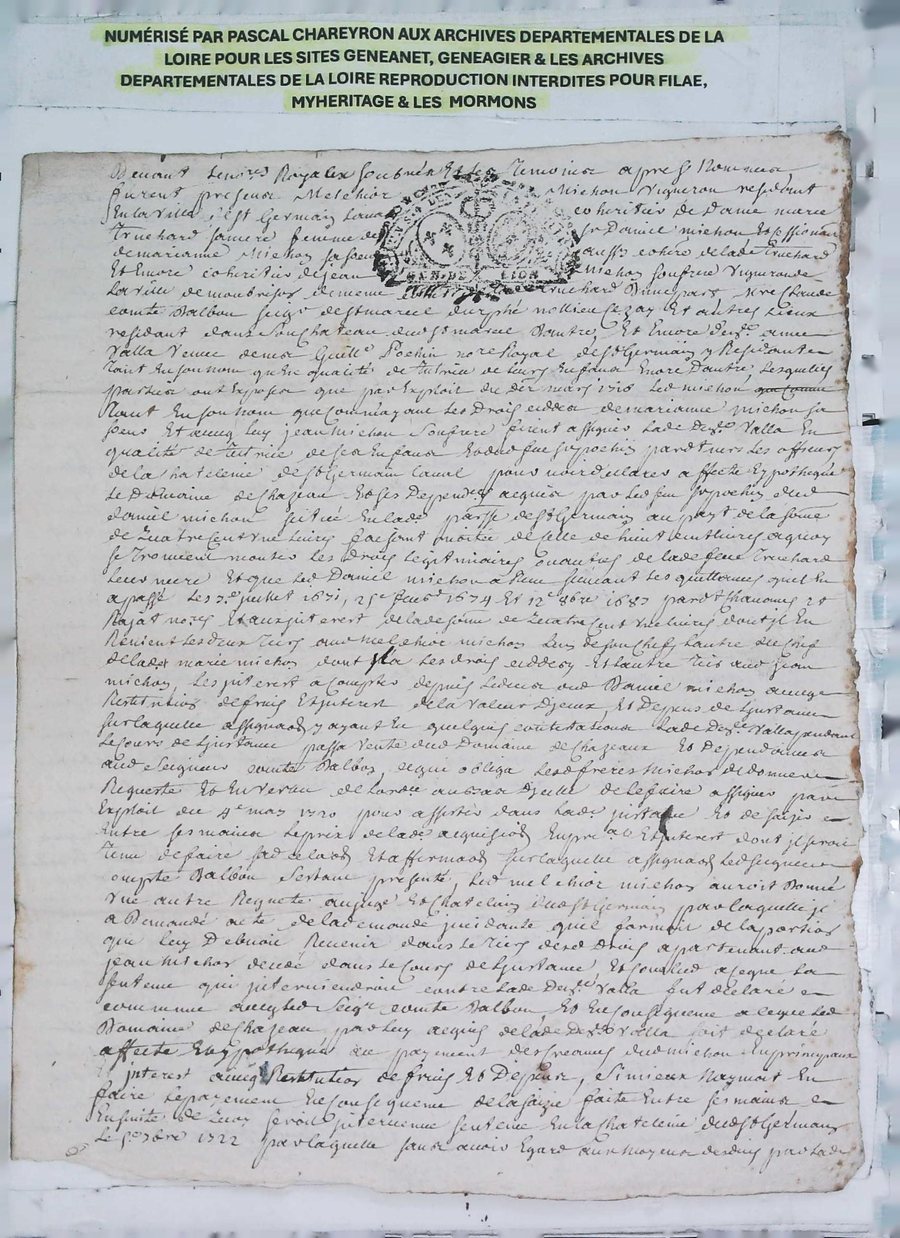 NUMÉRISÉ PAR PASCAL CHAREYRON AUX ARCHIVES DEPARTEMENTALES DE LA
LOIRE POUR LES SITES GENEANET, GENEAGIER & LES ARCHIVES
DEPARTEMENTALES DE LA LOIRE REPRODUCTION INTERDITES POUR FILAE,
MYHERITAGE & LES MORMONS
Royalex soubnés Et les Temoins apres Nommes
furent presens Melchior Michon Vigneron residant
En la Ville St Germain Laual coheritier de Dame marie
Truchard sa mere femme de Sr Daniel michon
demarianne Michon sa soeur aussy cohere delade Truchard
Et Encore coheritier de Jean Michon son frere Vigneron de
GEN DE LION
La Ville de monbrison Truchard Dune part
comte Dalbon seigr de St marcel durphé nollieu sezay Et autres Lieux
residant dans son chateau dud St marcel Dautre, Et Encore
Valla Veuve de mre Guille Pochin nore Royal de St Germain y Residante
Tant En son nom qu'En qualité de Tutrice de leurs Enfans Encore Dautre, Lesquelles
parties ont Exposés que par Exploit du mars 1718 Led michon
Tant En son nom que comme ayant Les Droits ceddés demarianne michon sa
soeur Et aueq luy jean michon son frere firent assigner Lade Delle Valla En
qualité de Tutrice de ses Enfans pardevant Les officiers
de la chatelenie de St Germain Laual pour voir declarer affecté Et ypothequé
Le Domaine de chazeau Et ses Dependces acquis par Led feu Sr pochin dud
daniel michon situé En lade parroisse de St Germain au payt de la some
de quatre cent une liures faisant moitié de celle de huit cent liures aquoy
se Trouvent monter Les droits Legitimaires de lade feue Truchard
Leur mere Et que Led Daniel michon a Reçu suivant Les quittances quil En
a passé Les juillet 1671, 25e feur 1674 Et 12e 8bre 1683
nores Et aux interest de lade some de quatre cent une liures dont il En
Revient Les deux Tiers aud melchior michon Lun de son chef, Lautre du chef
de lade marie michon dont il a Les droits ceddés Et Lautre Tiers aud jean
michon, Les interest a compter depuis le deces dud Daniel michon aueq
Restitution de fruits Et interest de la Valeur Diceux Et Depens de Linstance
sur laquelle assignaon y ayant Eu quelques contestations Lade Delle Valla pendant
Le cours de Linstance passa Vente dud Domaine de chazeau Et Dependances
aud Seigneur comte Dalbon, ce qui obligea Lesd freres Michon de donner
Requeste Et En Vertu de Lordce au bas dicelle de le faire assigner par
Exploit du 4e may 1720 pour assister dans Lade instance Et de saisir
Entre ses mains Le prix de lade acquisition En pral Et interest dont il seroit
Tenu de faire sa declaraon Et affirmaon sur laquelle assignaon Led seigneur
compte Dalbon sestant presenté, Led melchior michon auroit Donné
Vne autre Requete aud St Germain par laquelle il
a Demandé acte de la demande quil formoit de la portion
que luy Debuoit Revenir dans le Tiers desd droits appartenant aud
jean michon decedé dans le cours de Linstance, Et conclud a ce que La
sentence qui interuiendroit contre Lade Delle Valla fut declaré
commune aueq led Seigr comte Dalbon Et En consequence a ce que Led
Domaine de chazeau, par luy acquis de lade Delle Valla soit declaré
affecté Et ypothequé au payement des creances dud michon En principaux
Et interest aueq Restitution de fruits Et Depens, si mieux Naymoit En
faire Le payement En consequence de la saizie faite Entre ses mains
Ensuite de quoy seroit interuenue sentence En la chatelenie dud St Germain
Le 9bre 1722 par laquelle sans auoir Egard aux moyens desduits par Lade